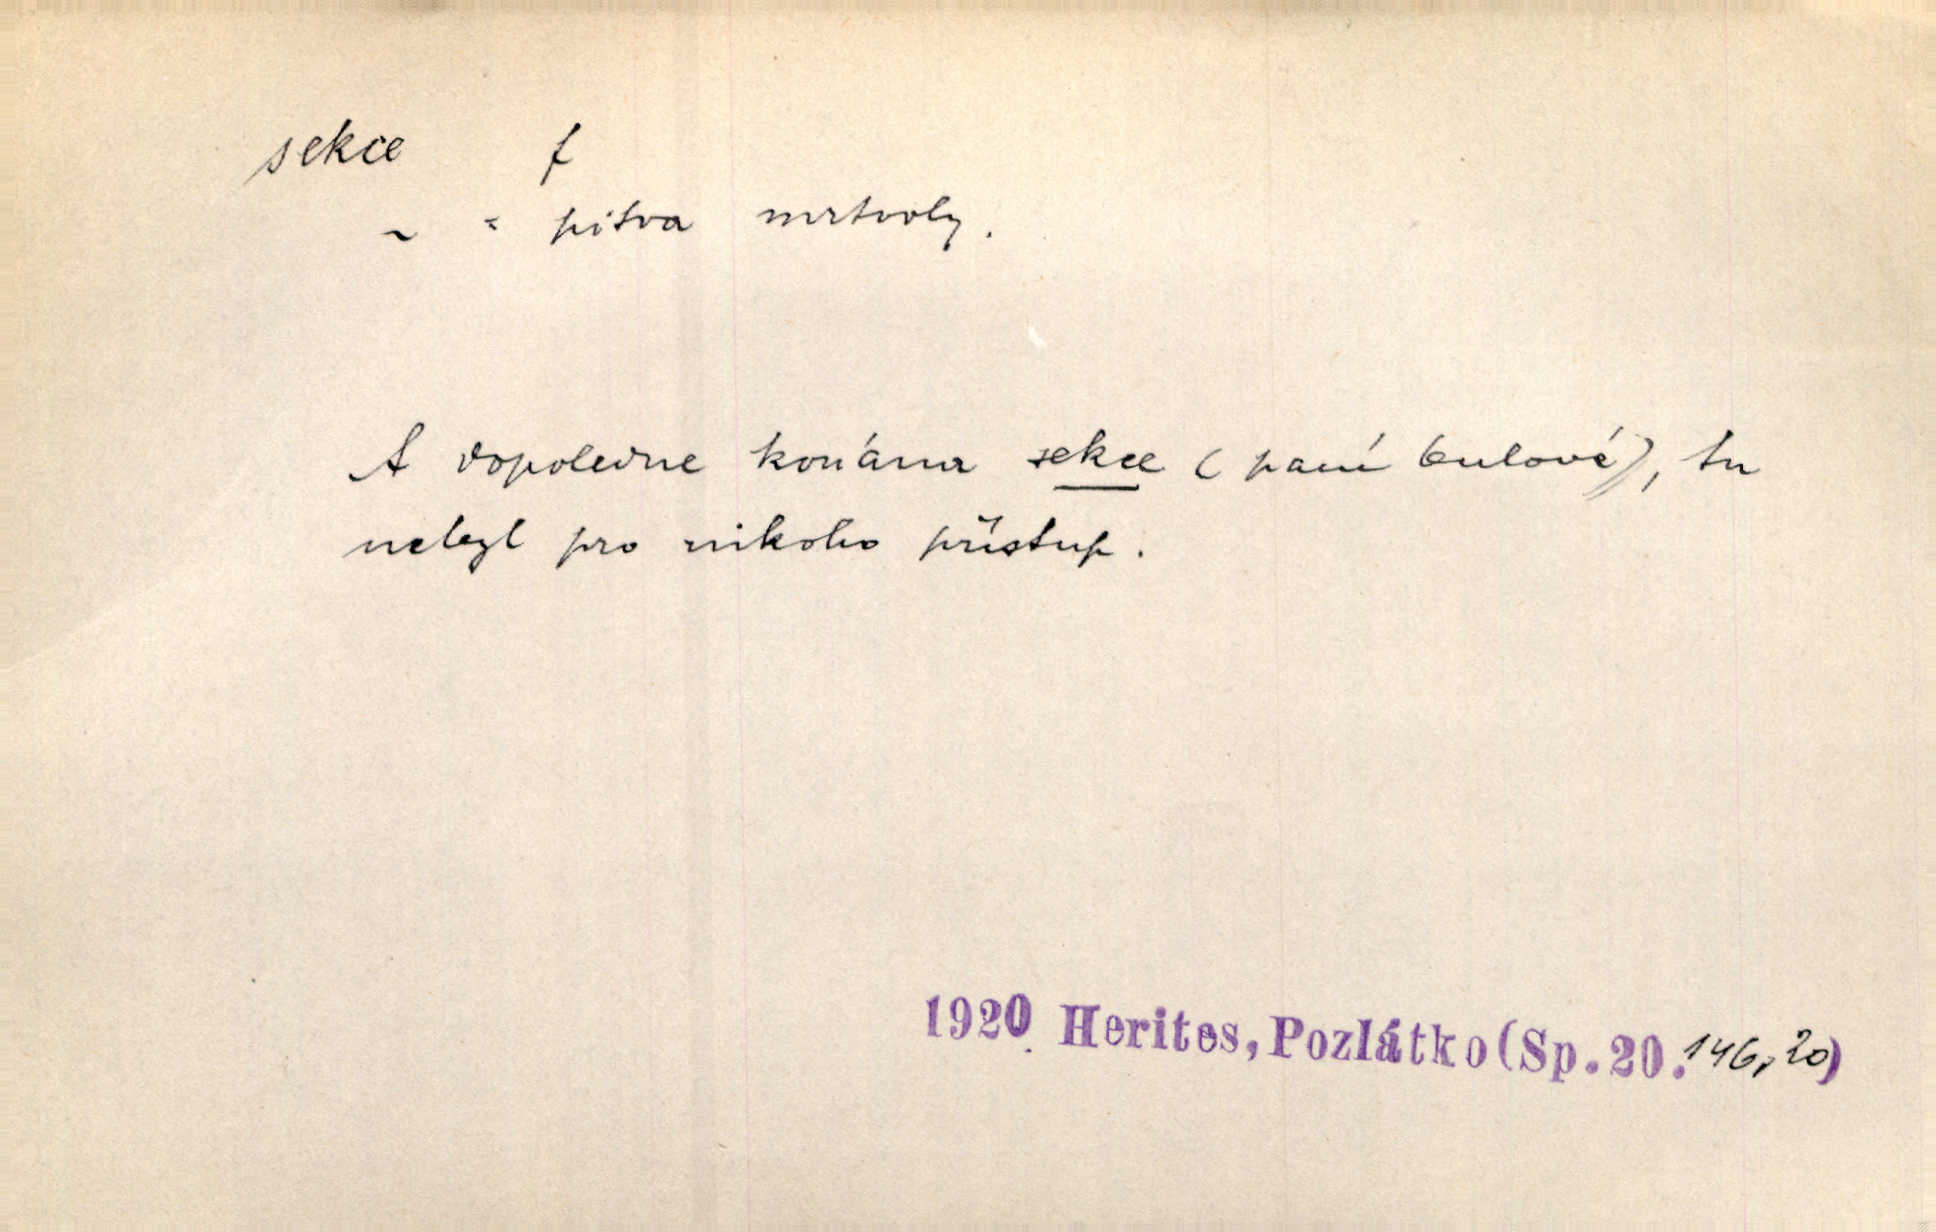 sekce f
~ = pitva mrtvoly.
A dopoledne konána sekce (paní Culové), tu
nebyl pro nikoho přístup.
1920 Herites, Pozlátko (Sp. 20. 146, 20)